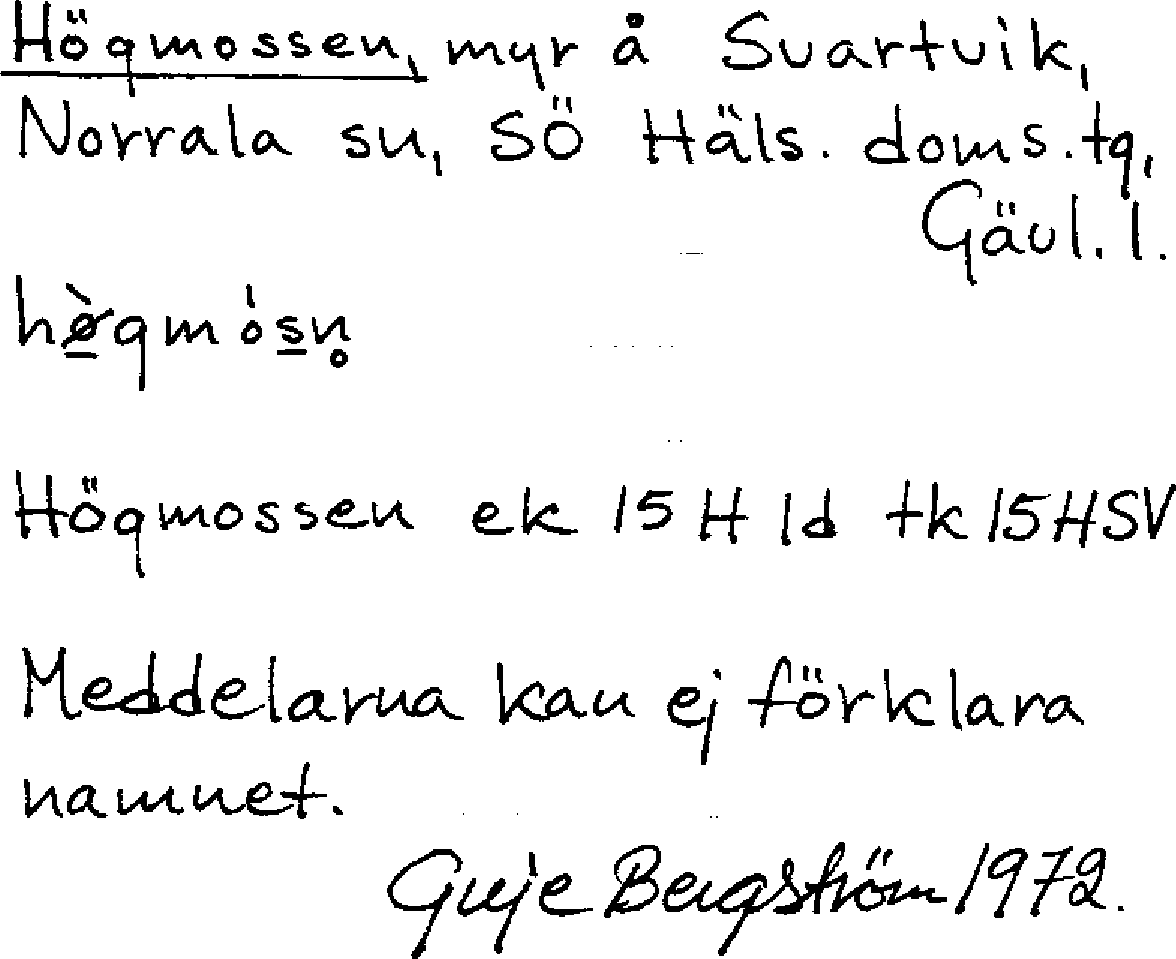 Högmossen, myr å Svartvik,
Norrala sn, SÖ Häls. doms.tg,
Gävl. l.
hø̠̀gmòs̠n̥
Högmossen ek 15 H 1d tk 15HSV
Meddelarna kan ej förklara
namnet.
Guje Bergström 1972.